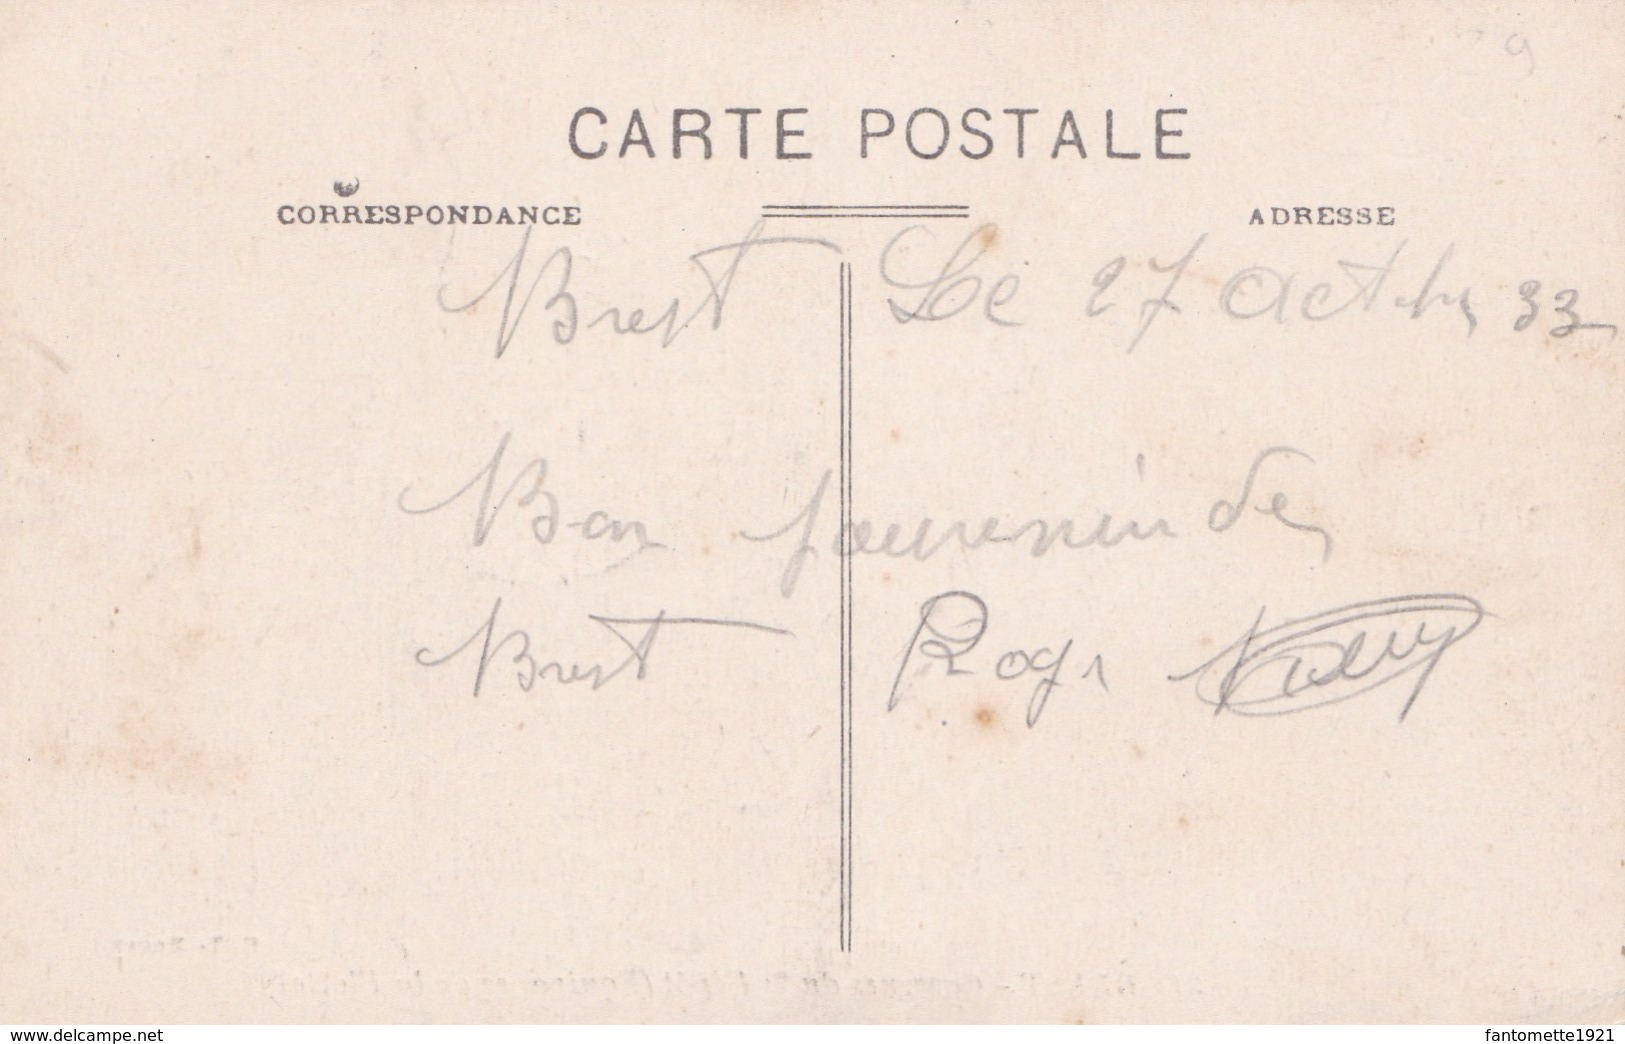 9
CARTE POSTALE
CORRESPONDANCE
ADRESSE
Brest Le 27 Octbr 33
Bon souvenir de
Brest Roger
www.delcampe.net
fantomette1921